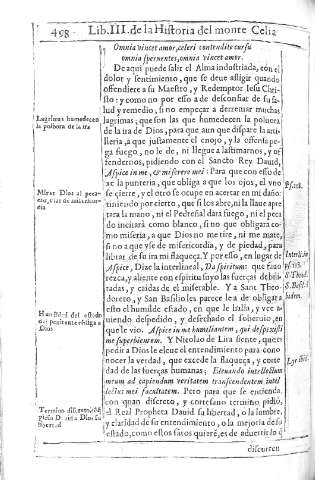 498 Lib. III. de la Historia del monte Celia
Omnia vincet amor, celeri contendite cursu
omnia spernentes, omnia vincet amor.
De aqui puede salir el Alma industriada, con el
dolor y sentimiento, que se deue afligir quando
offendiere a su Maestro, y Redemptor Iesu Chris-
to: y como no por esso à de desconfiar de su sa-
lud y remedio, si no empeçar a derramar muchas
lagrimas; que son las que humedecen la poluora
de la ira de Dios, para que aun que dispare la arti-
lleria, a que justamente el enojo, y la offensa pe-
ga fuego, no le de, ni llegue a lastimarnos, y of
fendernos, pidiendo con el Sancto Rey Dauid,
Aspice in me, & miserere mei: Para que con esso de
xe la punteria, que obliga a que los ojos, el vno
se cierre, y el otro se ocupe en acertar en mi daño:
tiniendo por cierto, que si los abre, ni la llaue apre
tara la mano, ni el Pedreñal dara fuego, ni el peca
do incitarà como blanco, si no que obligara co-
mo miseria, a que Dios no me tire, ni me mate,
si no a que vse de misericordia, y de piedad, para
librar de su ira mi flaqueça. Y por esso, en lugar de
Aspice, Diae la interlineal, Da spiritum: que fauo
rezca, y aliente con espiritu suyo las fuerças debili-
tadas, y caidas de el miserable. Ya Sant Theo-
doreto, y San Basilio les parece le a de obligar a
esto el humilde estado, en que le halla, y vce a-
uiendo despedido, y desechado el soberuio, en
que le vio. Aspice in me humiliantem, qui despexisti
me superbientem. Y Nicolao de Lira siente, que es
pedir a Dios le eleue el entendimiento para cono
nocer la verdad, que excede la flaqueça, y corte
dad de las fuerças humanas; Eleuando intellectum
meum ad capiendum veritatem transcendentem intel
lectus mei facultatem. Pero para que se entienda,
con quan discreto, y cortesano termino pidiò,
el Real Propheta Dauid sa libertad, o la lumbre,
y claridad de su entendimiento, o la mejoria de su
estado, como estos satos quieré, es de aduertir q̃
discurren
Lagrimas humedecen
la poluora de la ira
Mirar Dios al peca-
Humildad del estado
del penitente obliga a
Dios
Termino discreto cõ q̃
pidio Dauid a Dios su
libertad
Psal.
S. Theod.
S. Basil.